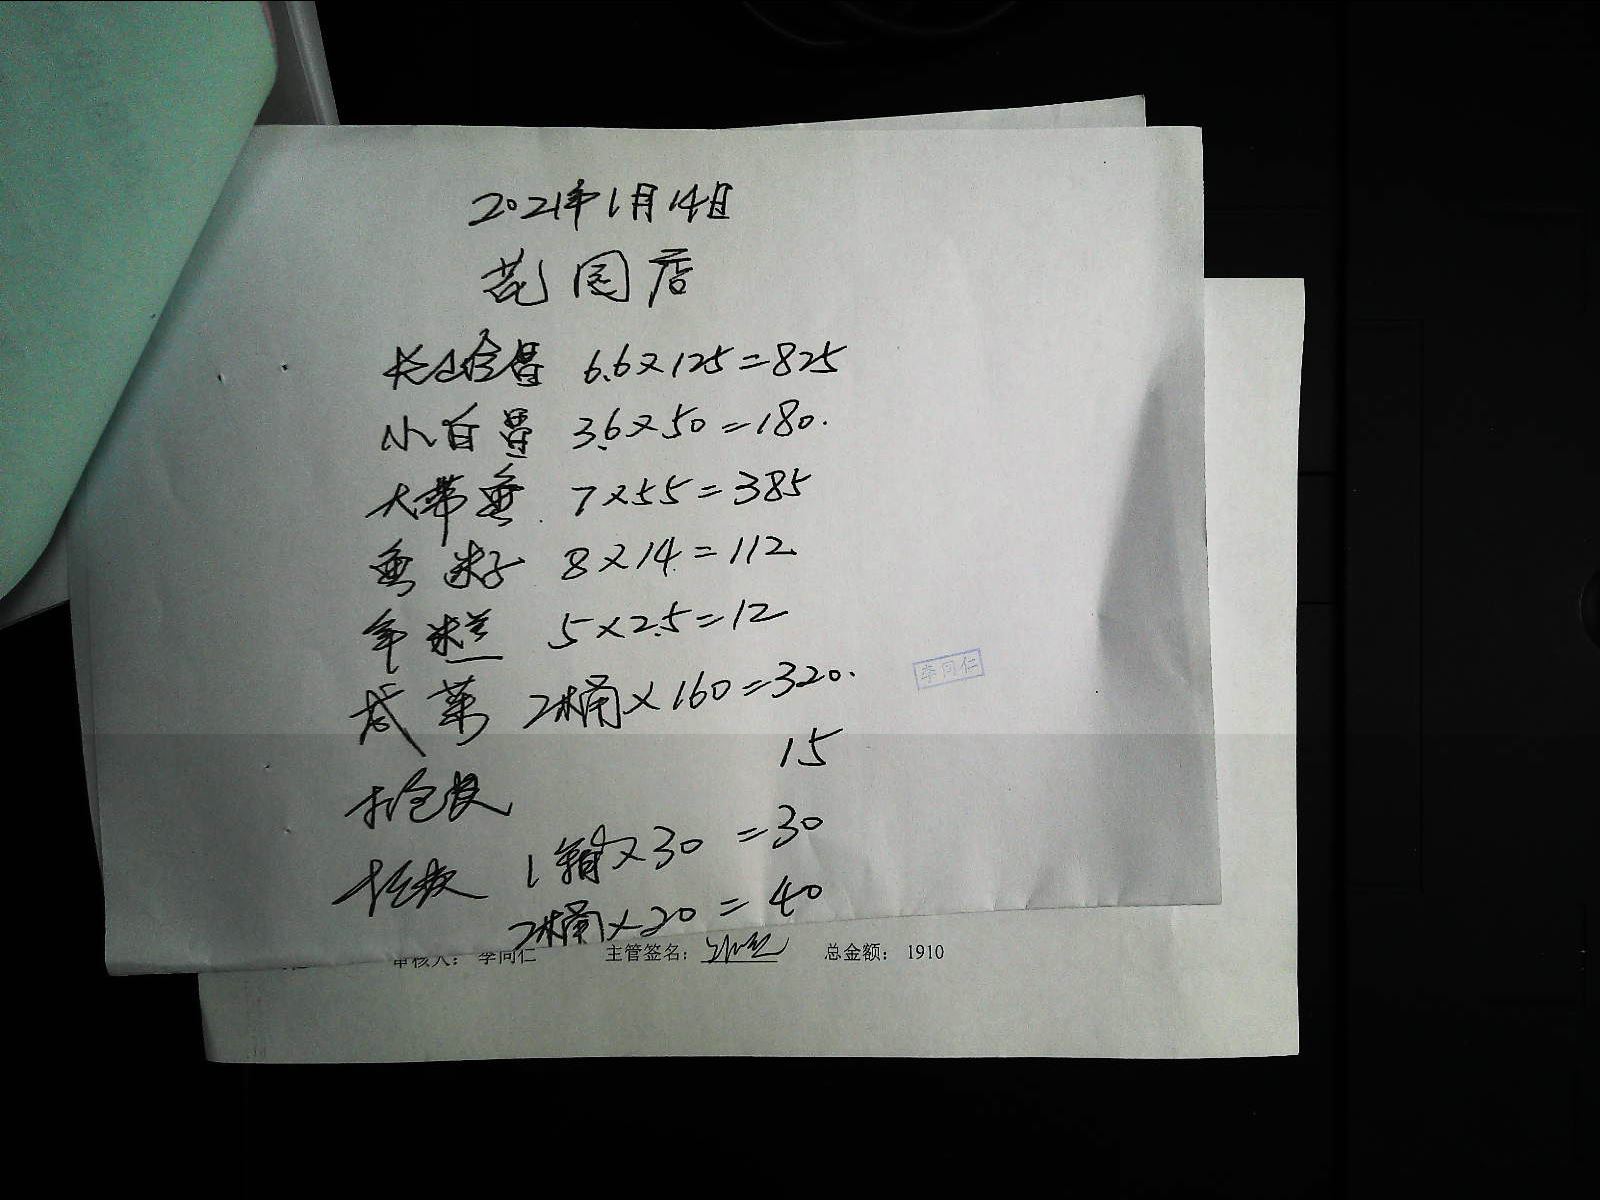 2021年1月14日
花园店
长白全昌 6.6×125=825
小白昌 3.6×50=180.
大带鱼 7×55=385
鱼迷子 8×14=112
年糕 5×2.5=12
咸菜 2桶×160=320.
15
1箱×30=30
2桶×20=40
李同仁
审核人： 李同仁 主管签名： 总金额： 1910